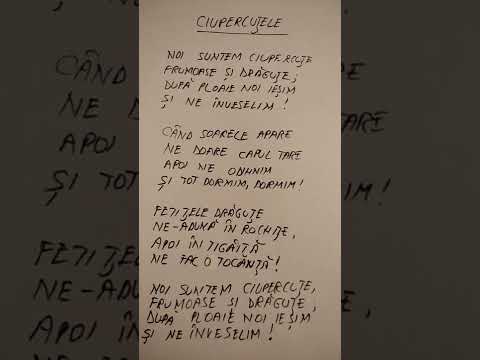 CIUPERCUȚELE
NOI SUNTEM CIUPERCUȚE
FRUMOASE ȘI DRĂGUȚE,
DUPĂ PLOAIE NOI IEȘIM
ȘI NE ÎNVESELIM!
CÂND SOARELE APARE
NE DOARE CAPUL TARE
APOI NE ODIHNIM
ȘI TOT DORMIM, DORMIM!
FETIȚELE DRĂGUȚE
NE-ADUNĂ ÎN ROCHIȚE,
APOI ÎN TIGĂIȚĂ
NE FAC O TOCĂNIȚĂ!
NOI SUNTEM CIUPERCUȚE,
FRUMOASE ȘI DRĂGUȚE,
DUPĂ PLOAIE NOI IEȘIM
ȘI NE ÎNVESELIM!